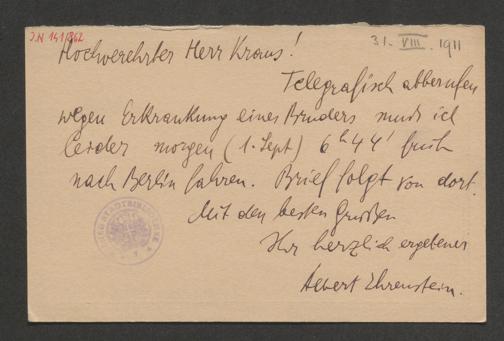 I.N 141.862
31. VIII. 1911
Hochverehrter Herr Kraus!
Telegrafisch abberufen
wegen Erkrankung eines Bruders muss ich
leider morgen (1. Sept) 6h 44' früh
nach Berlin fahren. Brief folgt von dort.
Mit den besten Grüßen
Ihr herzlich ergebener
Albert Ehrenstein.